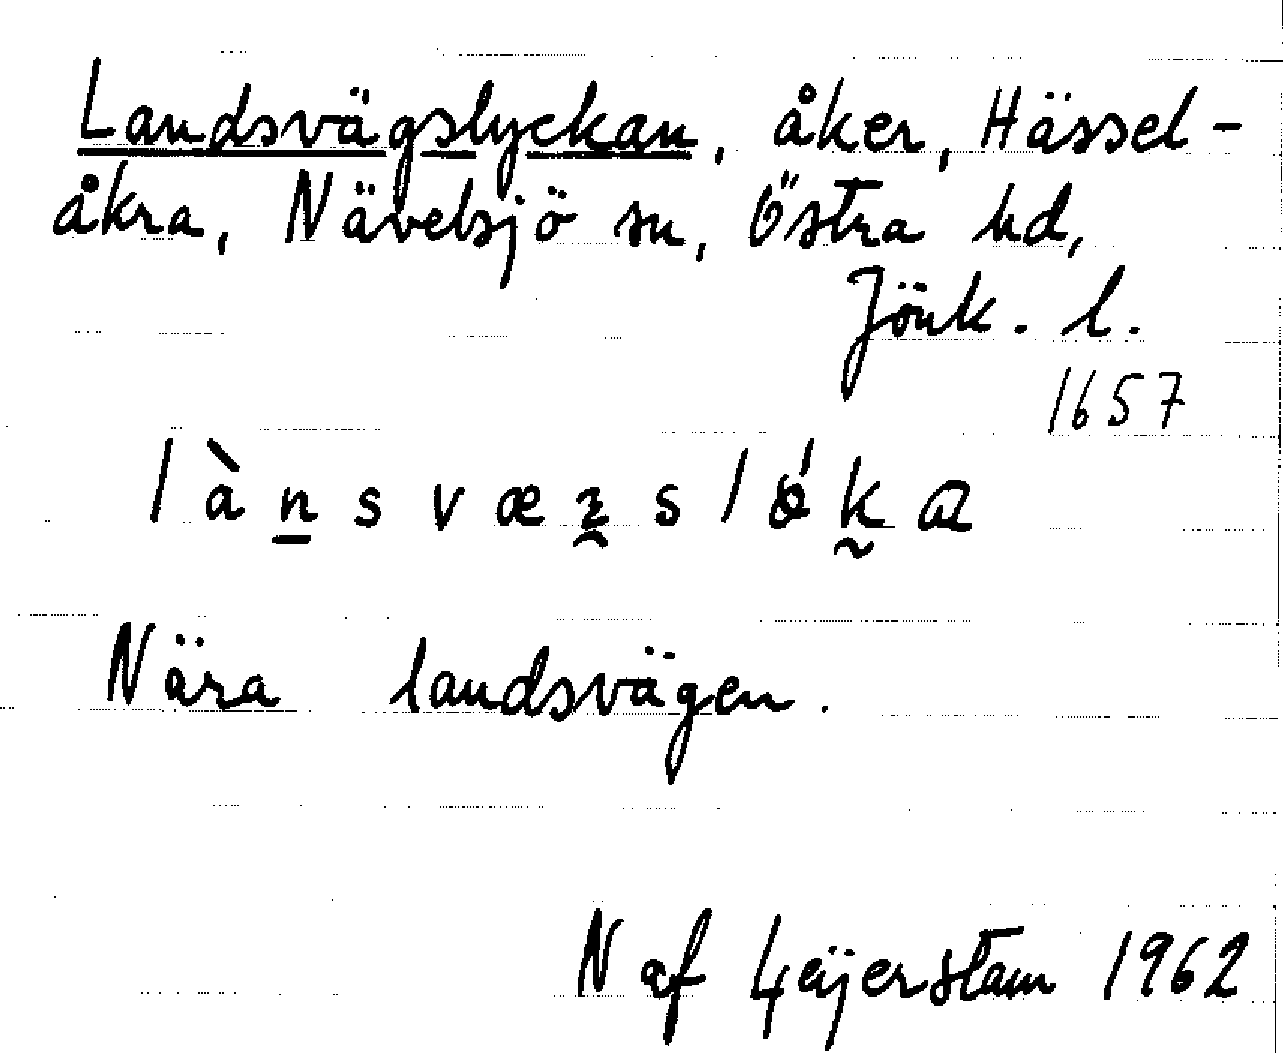 Landsvägslyckan, åker, Hässel-
åkra, Nävelsjö sn, Östra hd,
Jönk. l.
1657
Nära landsvägen.
N af Geijerstam 1962